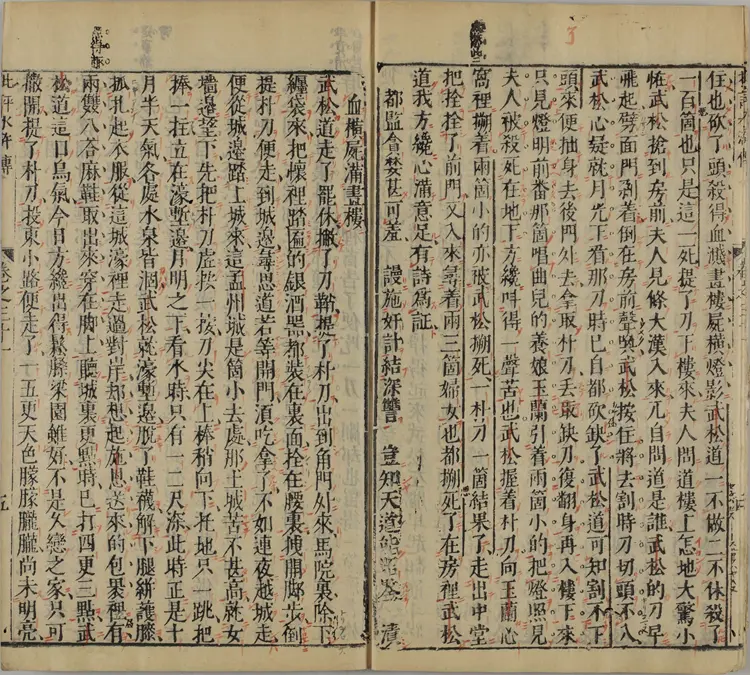 住也砍了頭殺得血濺畫樓屍橫燈影武松道一不做二不休殺了
一百箇也只是這一死提了刀下樓來夫人問道樓上怎地大驚小
怪武松搶到房前夫人見條大漢入來兀自問道是誰武松的刀早
飛起劈面門剁着倒在房前聲喚武松按住將去割時刀切頭不入
武松心疑就月光下看那刀時已自都砍缺了武松道可知割不下
頭來便抽身去後門外去拿取朴刀丟棄缺刀復翻身再入樓下來
只見燈明前番那箇唱曲兒的養娘玉蘭引着兩箇小的把燈照見
夫人被殺死在地下方纔呌得一聲苦也武松握着朴刀向玉蘭心
窩裡搠着兩箇小的亦被武松搠死一朴刀一箇結果了走出中堂
把拴拴了前門又入來尋着兩三箇婦女也都搠死了在房裡武松
道我方纔心滿意足有詩爲証
都監貪婪甚可羞 謾施奸計結深讐 豈知天道能昭鑒 漬
血橫屍滿畫樓
武松道走了罷休撇了刀鞘提了朴刀出到角門外來馬院裏除下
纏袋來把懷裡踏匾的銀酒器都裝在裏面拴在腰裏拽開脚步倒
提朴刀便走到城邊尋思道若等開門須吃拿了不如連夜越城走
便從城邊踏上城來這孟州城是箇小去處那土城苦不甚高就女
墻邊望下先把朴刀虛按一按刀尖在上棒稍向下托地只一跳把
棒一拄立在濠塹邊月明之下看水時只有一二尺深此時正是十
月半天氣各處水泉皆涸武松就濠塹邊脫了鞋襪解下腿絣護膝
抓扎起衣服從這城濠裡走過對岸却想起施恩送來的包褁裡有
兩雙八荅麻鞋取出來穿在脚上聽城裏更點時已打四更三點武
松道這口鳥氣今日方纔出得鬆臊梁園雖好不是久戀之家只可
撒開提了朴刀投東小路便走了一五更天色朦朦朧朧尚未明亮